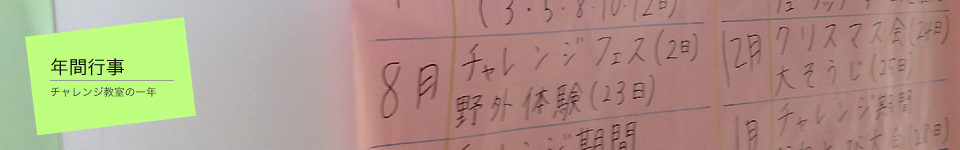 年間行事
チャレンジ教室の一年
(3・5・8・10・12日)
8月
チャレンジフェス(2日)
野外体験(23日)
期間
12月
クリスマス会(24日)
大そうじ(25日)
1月
チャレンジ期間
大会(28日)